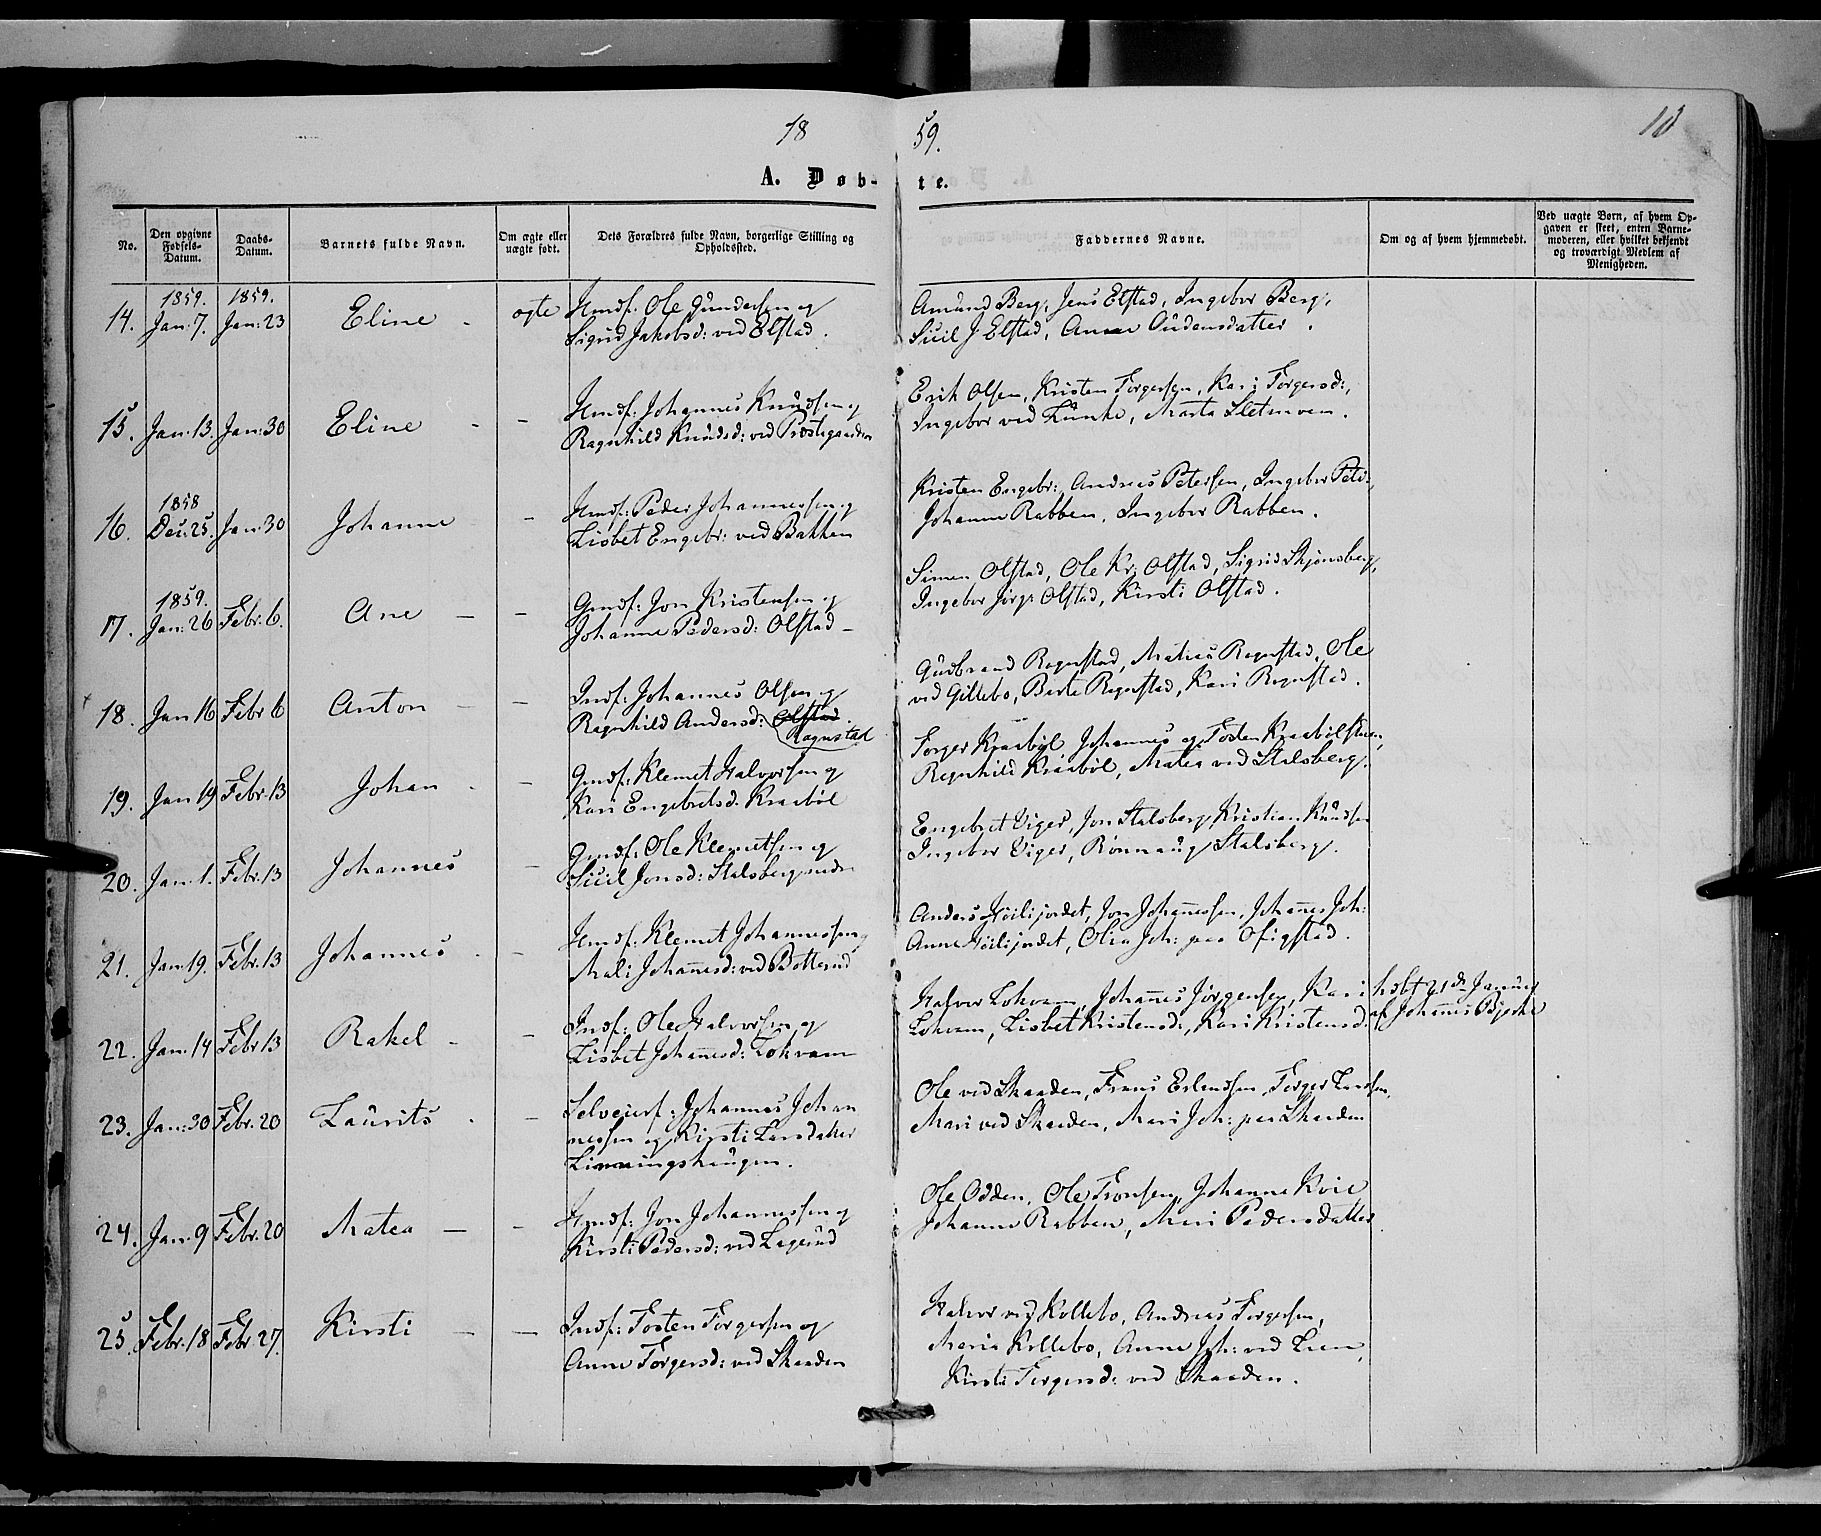 18 59. 10
A. Døb- te.
No. Den opgivne Fødsels-Datum. Daabs-Datum. Barnets fulde Navn. Om ægte eller uægte født. Dets Forældres fulde Navn, borgerlige Stilling og Opholdssted. Faddernes Navne. Om og af hvem hjemmedøbt. Ved uægte Børn, af hvem Opgaven er skeet, enten Barnemoderen, eller hvilket bekjendt og troværdigt Medlem af Menigheden.
1859. 1859.
14. Jan: 7. Jan: 23 Eline - ægte Hmdf: Ole Gundersen og
Sigrid Jakobsd: ved Elstad.
Amund Berg, Jens Elstad, Ingebor Berg,
Sicil J Elstad, Anne Oudensdatter.
15. Jan: 13. Jan: 30 Eline - - Hmdf: Johannes Knudsen og
Ragnhild Knudsd: ved Prestegaarden
Erik Olsen, Kristen Torgersen, Kari Torgersd:,
Ingebor ved Lunke, Marta Sletmoen.
1858
16. Dec: 25. Jan: 30 Johanne - Hmdf: Peder Johannessen og
Lisbet Engebr: ved Bakken
Kristen Engebr:, Andreas Petersen, Ingebor Peds:,
Johanne Rabben, Ingebor Rabben.
1859.
17. Jan: 26 Febr: 6. Ane - - Gmdf: Jon Kristensen og
Johanne Pedersd: Olstad -
Simen Olstad, Ole Kr: Olstad, Sigrid Skjønsberg,
Ingebor Jørg: Olstad, Kirsti Olstad.
18. Jan 16 Febr 6 Anton - - Indf: Johannes Olsen og
Ragnhild Andersd: Olstad.
Rognstad
Gudbrand Rognstad, Matias Rognstad, Ole
ved Gillebo, Berte Rognstad, Kari Rognstad.
19. Jan 19 Febr: 13 Johan - - Gmdf: Klemet Halvorsen og
Kari Engebretsd. Kraabøl
Torger Kraabøl, Johannes og Tosten Kraabølstuen,
Regnhild Kraabøl, Matea ved Stalsberg.
20. Jan: 1. Febr: 13 Johannes - Gmdf: Ole Klemetsen og
Sicil Jonsd: Stalsberg nedre
Engebret Viger, Jon Stalsberg, Kristian Knudsen
Ingebor Viger, Rønnaug Stalsberg.
21. Jan: 19. Febr: 13 Johannes - - Hmdf: Klemet Johannessen og
Mali Johannesd: ved Botterud
Anders Høilijordet, Jon Johannessen, Johannes Joh:
Anne Høilijordet, Olia Joh: paa Ofigstad.
22. Jan: 14 Febr 13 Rakel - - Indf: Ole Halvorsen og
Lisbet Johannesd: Lokvam
Halvor Lokvam, Johannes Jørgensen, Kari
Lokvam, Lisbet Kristensd:, Kari Kristensd:
hdbt 21de Januar
af Johannes Bjerke
23. Jan: 30 Febr. 20 Laurits - - Selveierf: Johannes Johan
nessen og Kirsti Larsdatter
Linnungshaugen.
Ole ved Skaaden, Frans Erlendsen, Torger Larssen,
Mari ved Skaaden, Mari Joh: paa Skaaden
24. Jan: 9 Febr: 20 Matea - - Hmdf: Jon Johannessen og
Kirsti Pedersd: ved Lagerud
Ole Odden, Ole Tronsen, Johanne Kvie
Johanne Rabben, Mari Pedersdatter
25. Febr. 18 Febr 27. Kirsti - - Indf: Tosten Torgersen og
Anne Torgersd: ved Skaaden
Halvor ved Kollebo, Andreas Torgersen,
Maria Kollebo, Anne Joh: ved Lien,
Kirsti Torgersd: ved Skaaden.